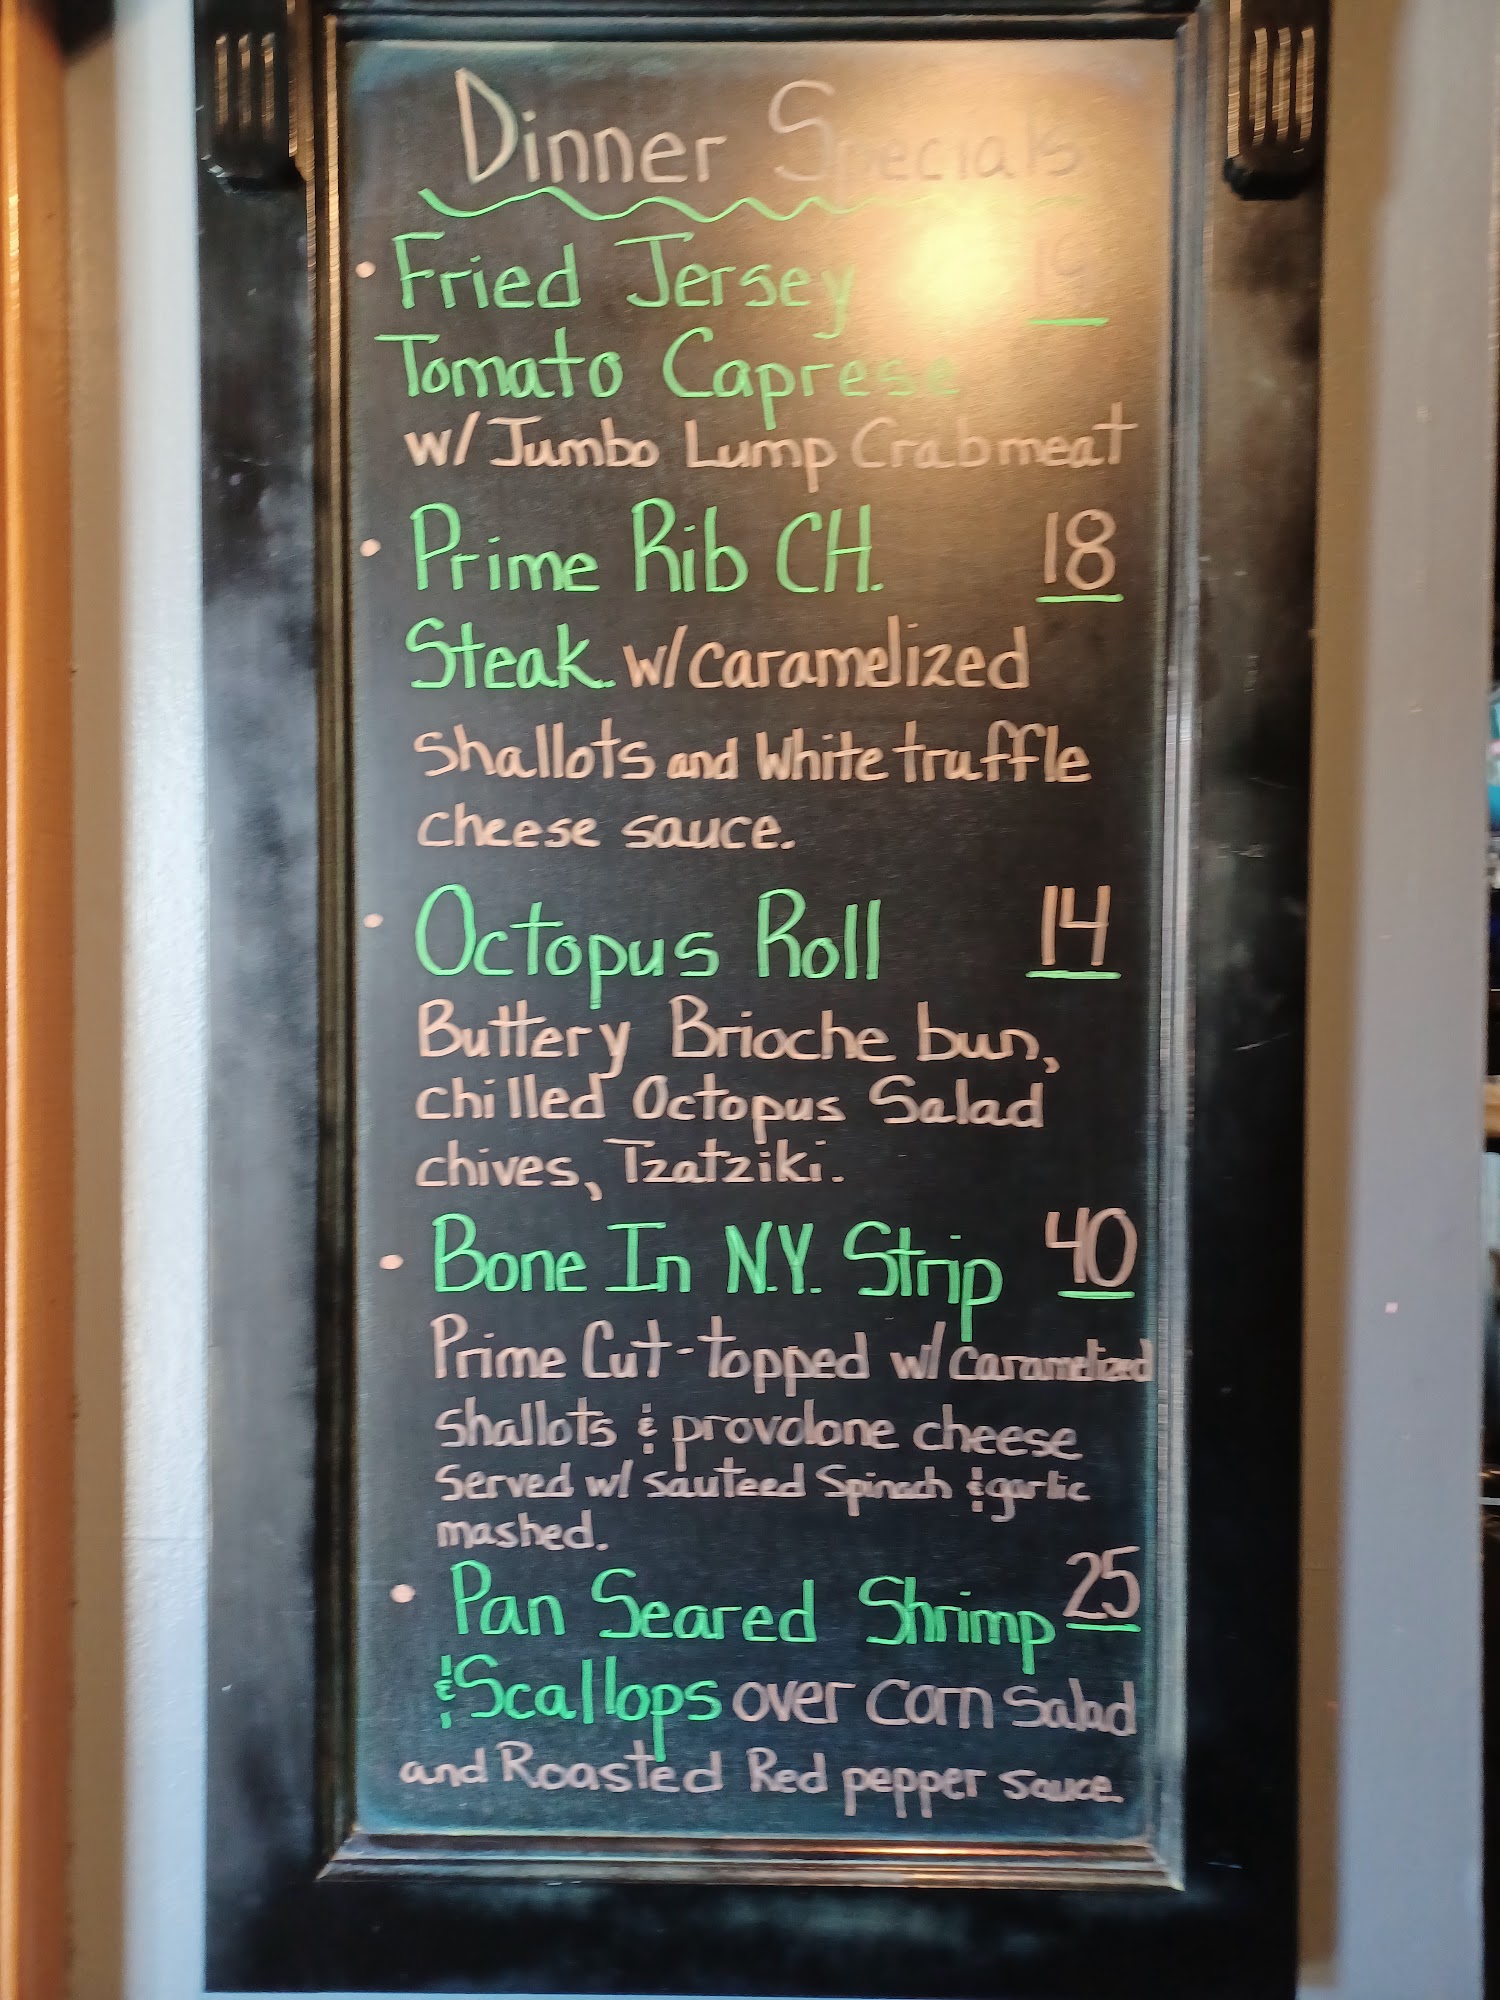 Dinner Specials
• Fried Jersey 19
Tomato Caprese
w/ Jumbo Lump Crabmeat
• Prime Rib CH. 18
Steak w/caramelized
Shallots and White truffle
cheese sauce.
• Octopus Roll 14
Buttery Brioche bun,
chilled Octopus Salad
chives, Tzatziki.
• Bone In N.Y. Strip 40
Prime Cut-topped w/ caramelized
Shallots & provolone cheese
Served w/ sauteed Spinach & garlic
mashed.
• Pan Seared Shrimp 25
& Scallops over corn Salad
and Roasted Red pepper sauce.